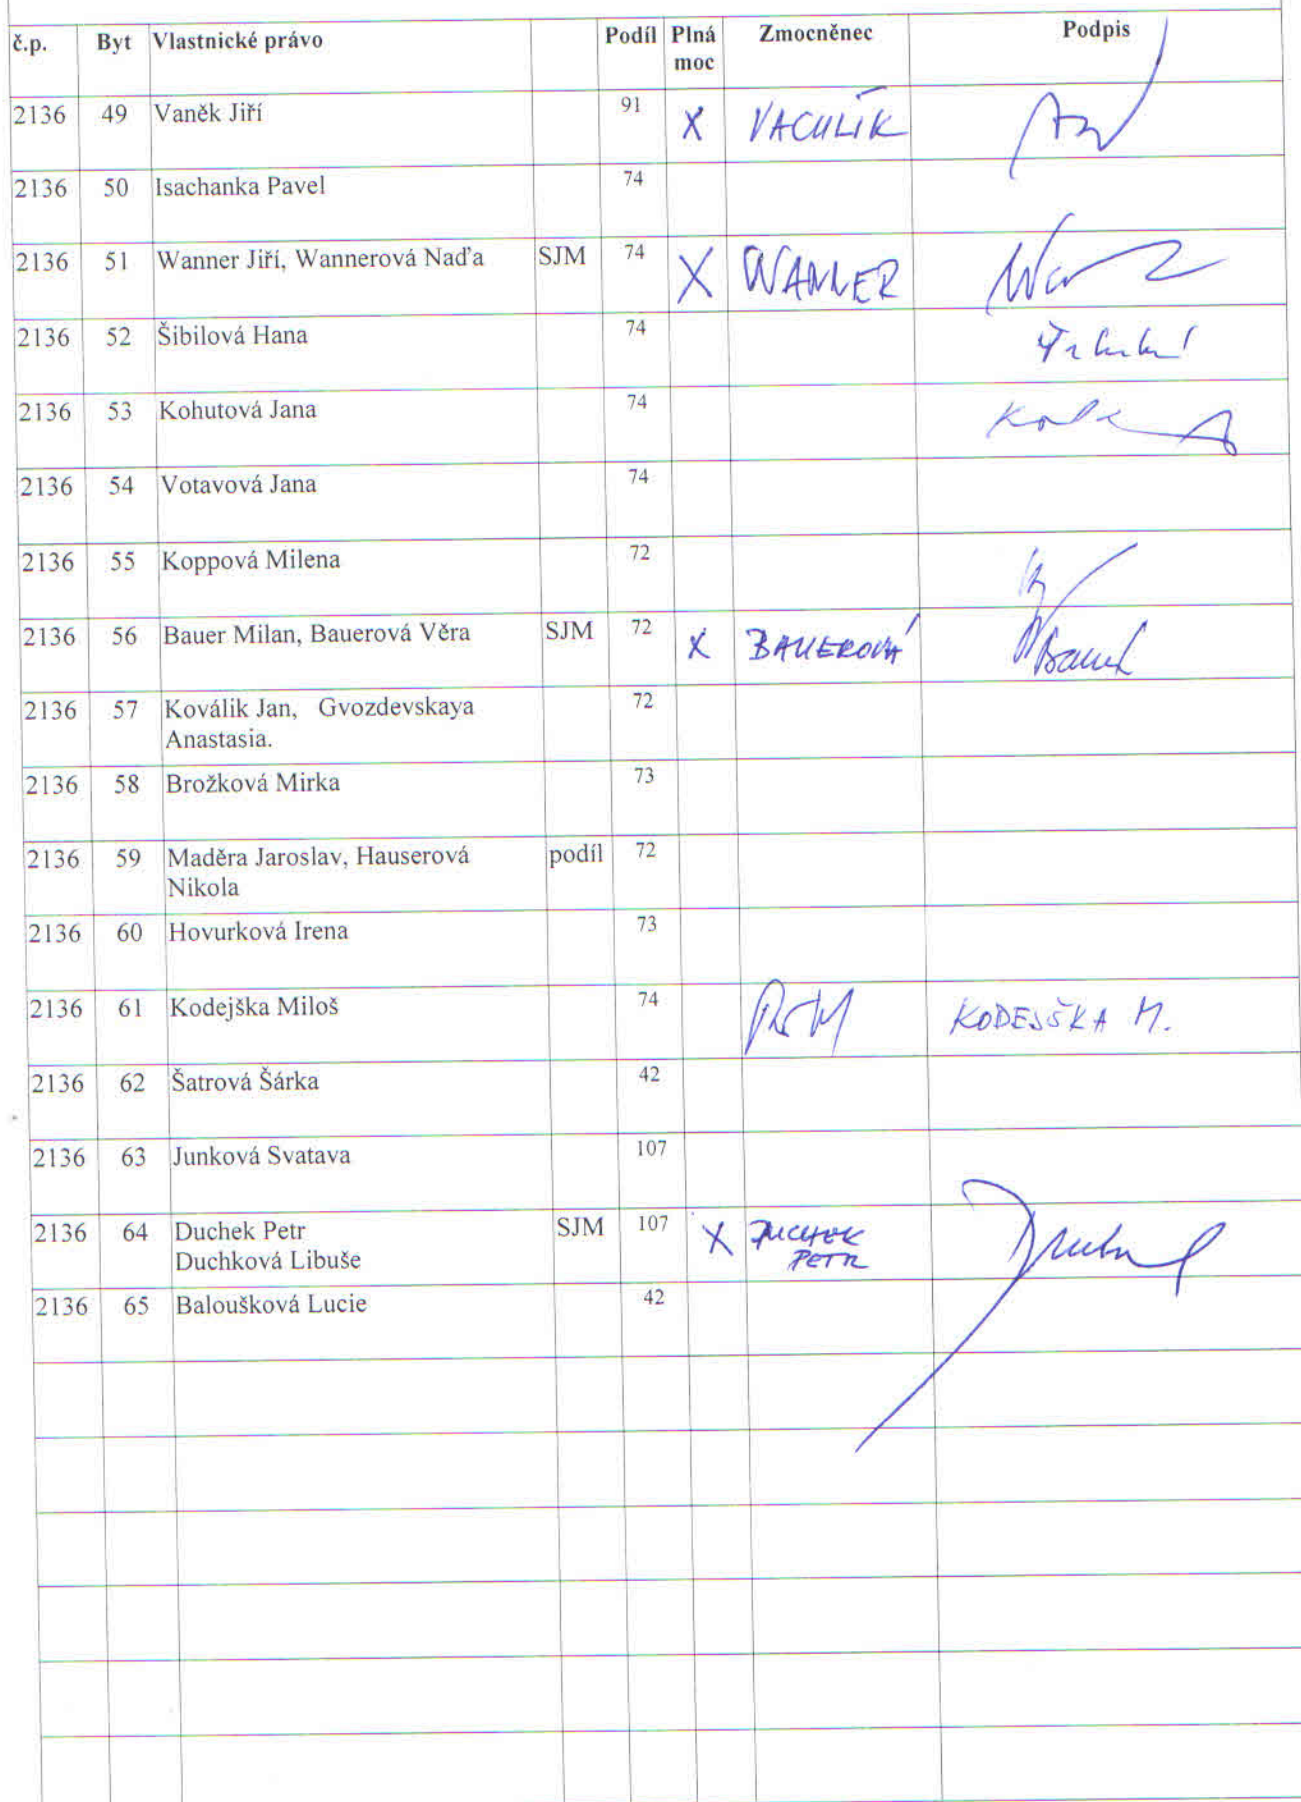 č.p. Byt Vlastnické právo Podíl Plná moc Zmocněnec Podpis
2136 49 Vaněk Jiří 91 X VACULÍK
2136 50 Isachanka Pavel 74
2136 51 Wanner Jiří, Wannerová Naďa SJM 74 X WANNER
2136 52 Šibilová Hana 74
2136 53 Kohutová Jana 74
2136 54 Votavová Jana 74
2136 55 Koppová Milena 72
2136 56 Bauer Milan, Bauerová Věra SJM 72 X BAUEROVÁ
2136 57 Koválik Jan, Gvozdevskaya 72
Anastasia.
2136 58 Brožková Mirka 73
2136 59 Maděra Jaroslav, Hauserová podíl 72
Nikola
2136 60 Hovurková Irena 73
2136 61 Kodejška Miloš 74 KODEJŠKA M.
2136 62 Šatrová Šárka 42
2136 63 Junková Svatava 107
2136 64 Duchek Petr SJM 107 X DUCHEK
Duchková Libuše PETR
2136 65 Baloušková Lucie 42